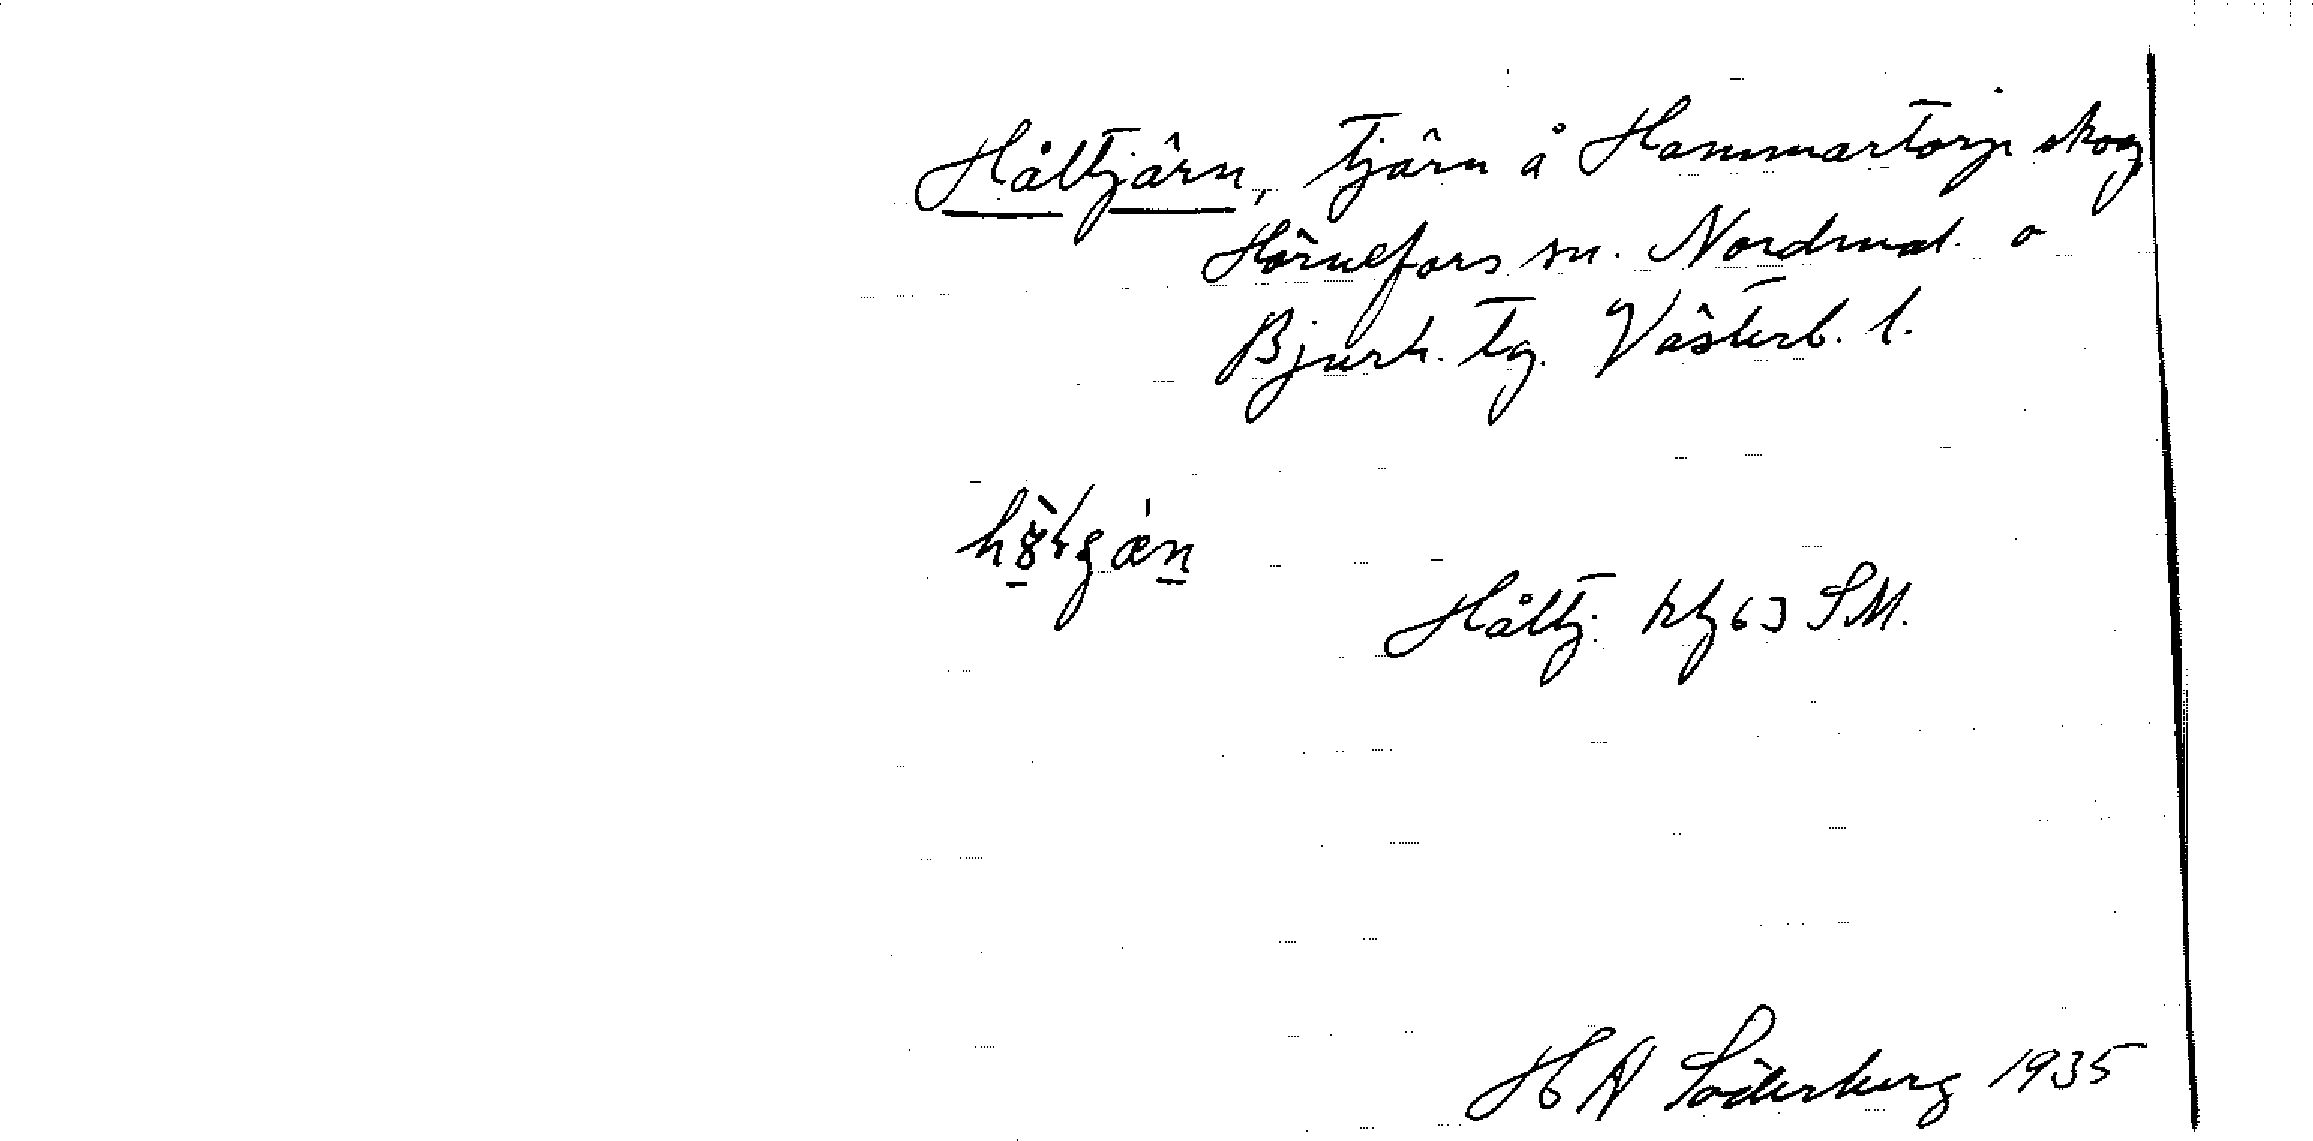 Håltjärn, tjärn å Hammartorp skog
Hörnefors sn. Nordmal. o
Bjurh. tg. Västerb. l.
Håltj. kbl 63 SM.
H N Söderberg 1935